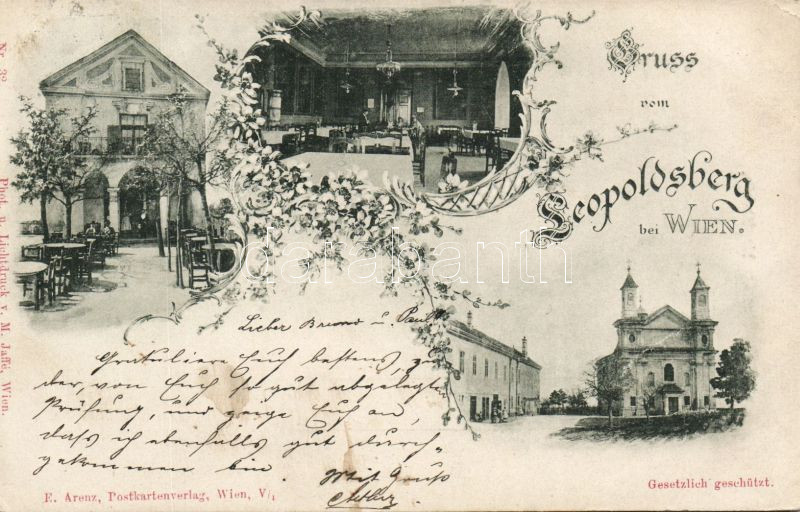 Gruss
vom
Leopoldsberg
bei WIEN.
Lieber Bruno u. Paul
Gratuliere Euch bestens, zu
der, von Euch so gut abgelegten
Prüfung, und zeige Euch an,
dass ich ebenfalls gut durch-
gekommen bin.
Mit Gruß
Nr. 38
Phot. u. Lichtdruck v. M. Jaffé, Wien.
E. Arenz, Postkartenverlag, Wien, V/1
Gesetzlich geschützt.
darabanth